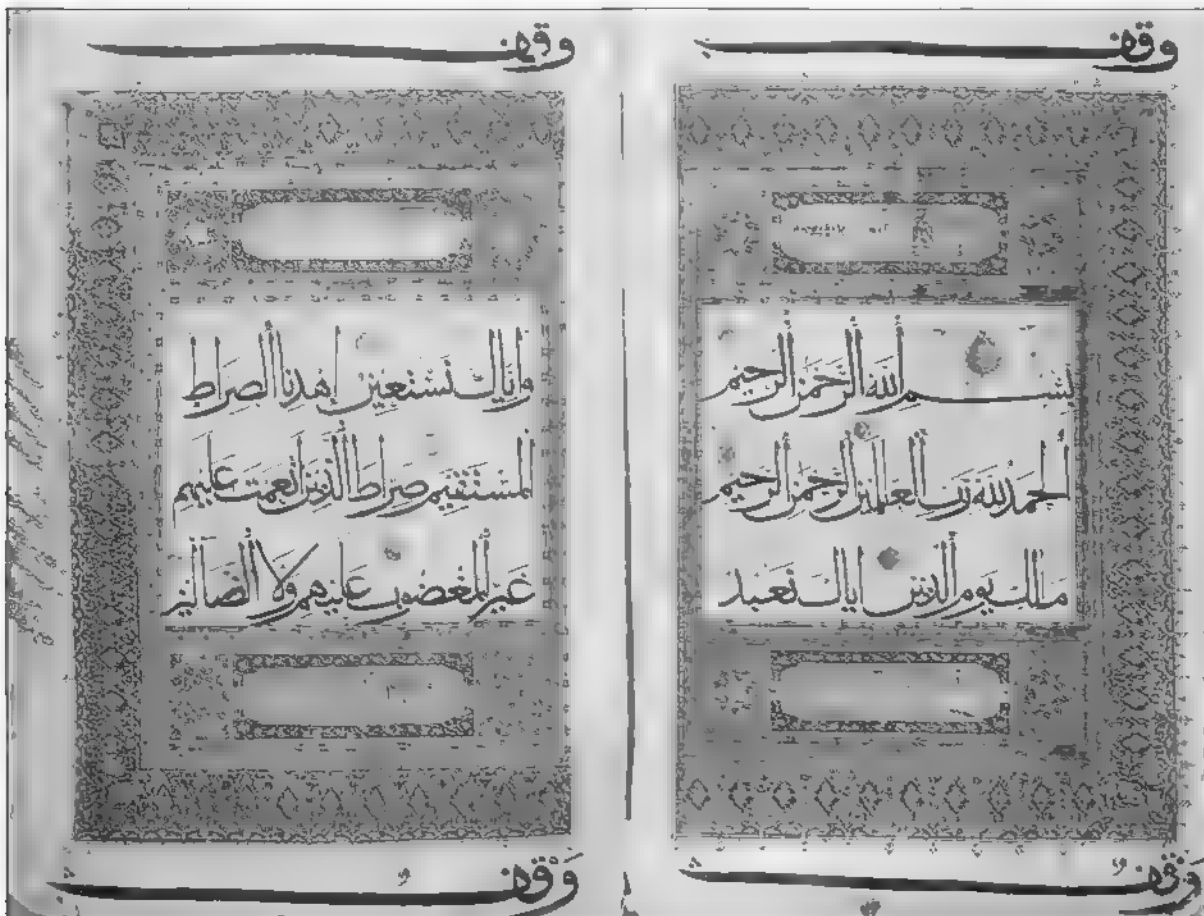 وقف
بسم الله الرحمن الرحيم
الحمد لله رب العلمين الرحمن الرحيم
مالك يوم الدين اياك نعبد
وقف
وقف
واياك نستعين اهدنا الصراط
المستقيم صراط الذين انعمت عليهم
غير المغضوب عليهم ولا الضالين
وقف